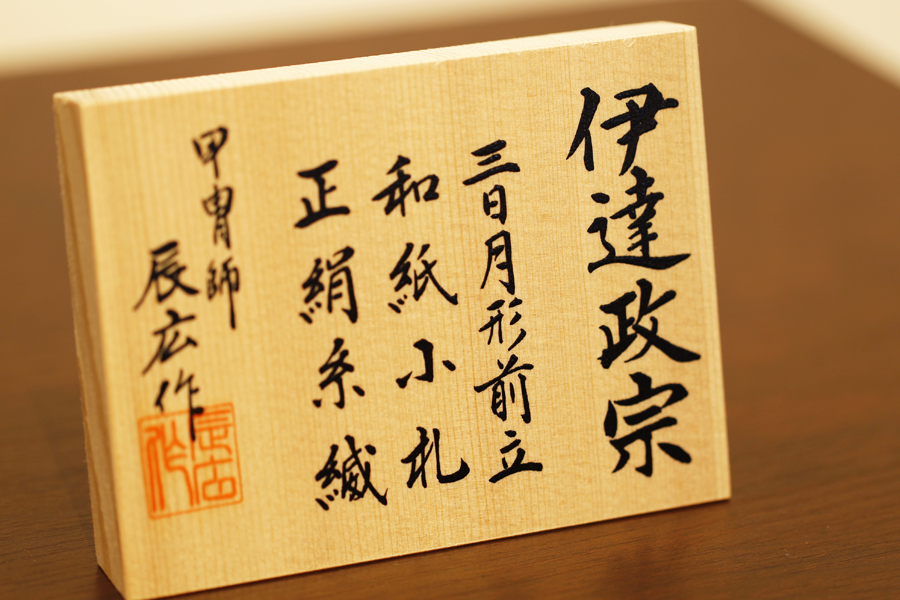 伊達政宗
三日月形前立
和紙小札
正絹糸縅
甲冑師
辰広作
辰広作